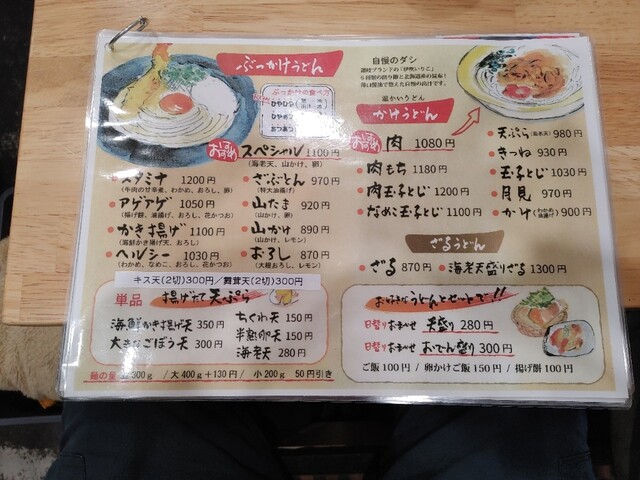 ぶっかけうどん
おすすめ
スペシャル 1100円
(海老天、山かけ、卵)
スタミナ 1200円
(牛肉の甘辛煮、わかめ、おろし、卵)
アゲアゲ 1050円
(揚げ餅、油揚げ、おろし、花かつお)
かき揚げ 1100円
(海鮮かき揚げ天、おろし)
ヘルシー 1030円
(わかめ、なめこ、おろし、花かつお)
ざぶとん 970円
(特大油揚げ)
山たま 920円
(山かけ、卵)
山かけ 890円
(山かけ、レモン)
おろし 870円
(大根おろし、レモン)
キス天(2切)300円/舞茸天(2切)300円
単品 揚げたて天ぷら
海鮮かき揚げ天 350円
大きなごぼう天 300円
ちくわ天 150円
半熟卵天 150円
海老天 280円
麺の量 並300g /大400g+130円/ 小200g 50円引き
自慢のダシ
温かいうどん
かけうどん
おすすめ
肉 1080円
肉もち 1180円
肉玉子とじ 1200円
なめこ玉子とじ 1100円
天ぷら(海老天) 980円
きつね 930円
玉子とじ 1030円
月見 970円
かけ 900円
ざるうどん
ざる 870円
海老天盛りざる 1300円
お好きなうどんとセットで!!
日替りおまかせ 天盛り 280円
日替りおまかせ おでん盛り 300円
ご飯100円 / 卵かけご飯150円 / 揚げ餅100円